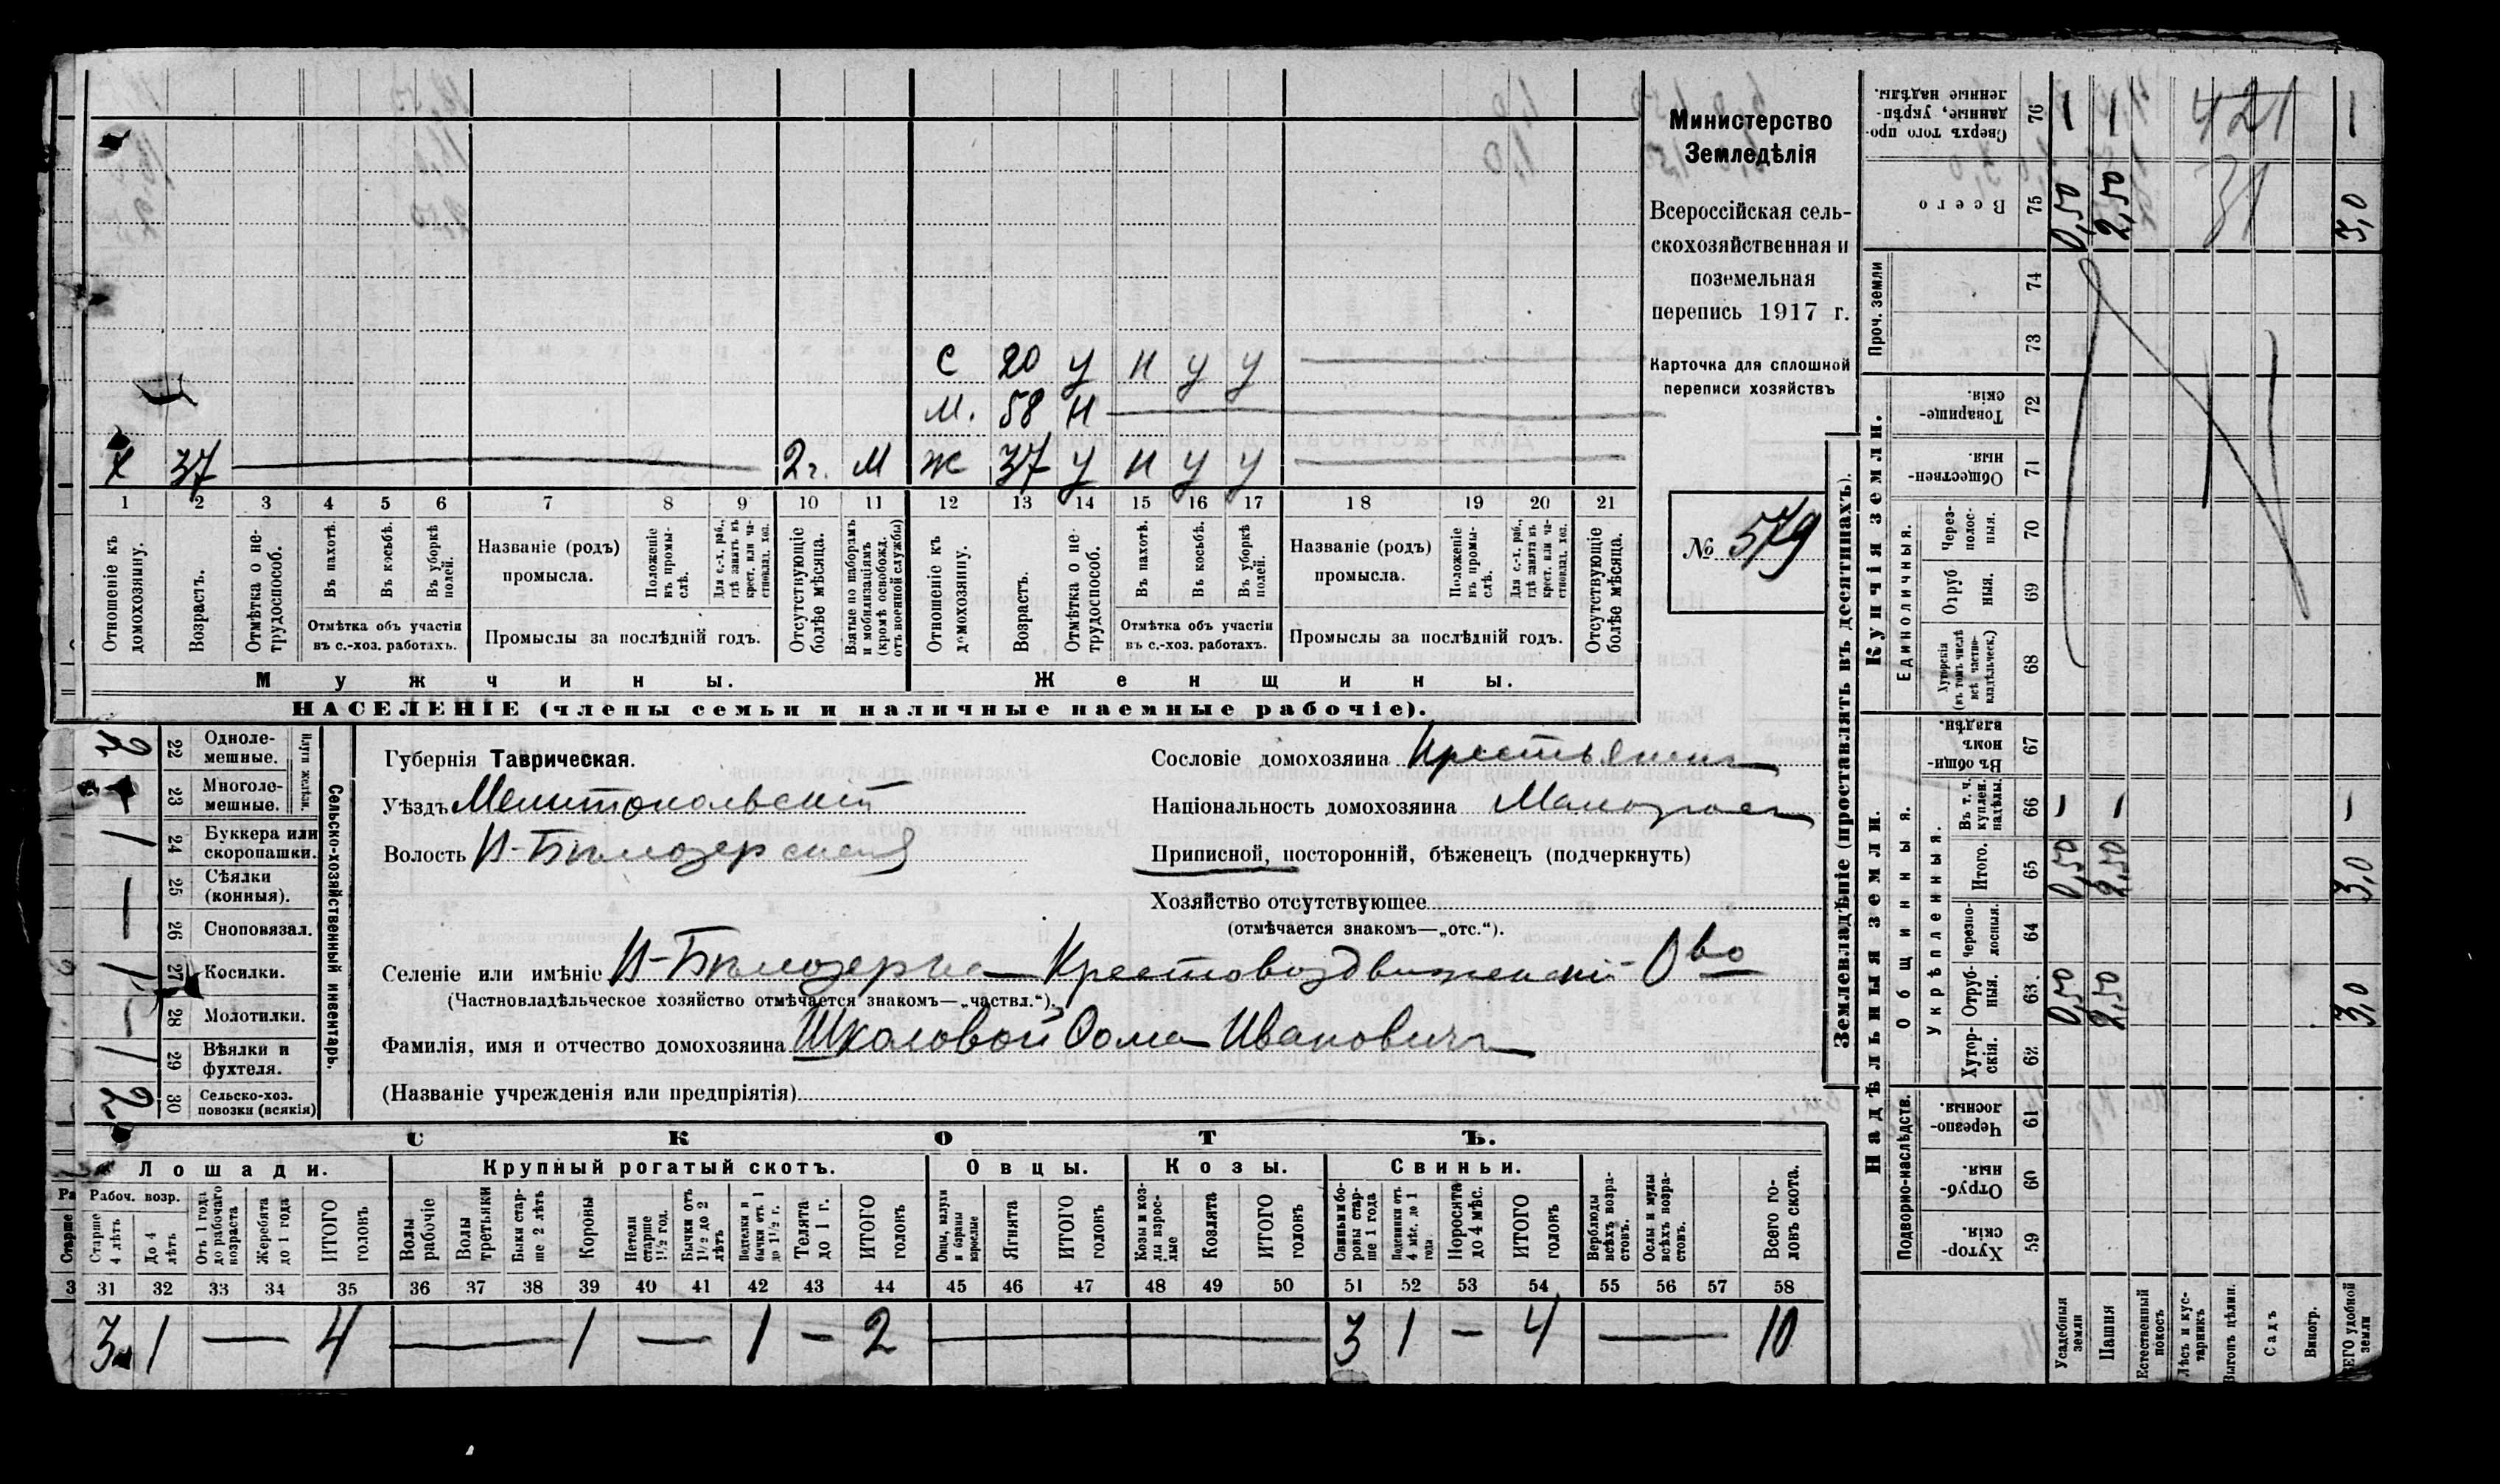 С 20 у н у у
М. 58 Н
Х 37 2 г. М Ж 37 у н у у
1 2 3 4 5 6 7 8 9 10 11 12 13 14 15 16 17 18 19 20 21
Отношеніе къ домохозяину.
Возрастъ.
Отмѣтка о не-трудоспособ.
Въ пахотѣ.
Въ косьбѣ.
Въ уборкѣ полей.
Отмѣтка объ участіи
въ с.-хоз. работахъ.
Названіе (родъ)
промысла.
Положеніе въ промы-слѣ.
Для с.-х. раб., гдѣ занятъ въ крест. или ча-стновлад. хоз.
Промыслы за послѣдній годъ.
Отсутствующіе болѣе мѣсяца.
Взятые по наборамъ и мобилизаціямъ (кромѣ освобожд. отъ военной службы)
Отношеніе къ домохозяину.
Возрастъ.
Отмѣтка о не-трудоспособ.
Въ пахотѣ.
Въ косьбѣ.
Въ уборкѣ полей.
Отмѣтка объ участіи
въ с.-хоз. работахъ.
Названіе (родъ)
промысла.
Положеніе въ промы-слѣ.
Для с.-х. раб., гдѣ занята въ крест. или ча-стновлад. хоз.
Промыслы за послѣдній годъ.
Отсутствующіе болѣе мѣсяца.
Мужчины.
Женщины.
НАСЕЛЕНІЕ (члены семьи и наличные наемные рабочіе).
Министерство
Земледѣлія
Всероссійская сель-
скохозяйственная и
поземельная
перепись 1917 г.
Карточка для сплошной
переписи хозяйствъ
№ 579
Сельско-хозяйственный инвентарь.
Плуги желѣзн.
2 22 Одноле-мешные.
23 Многоле-мешные.
1 24 Буккера или скоропашки.
— 25 Сѣялки (конныя).
26 Сноповязал.
1 27 Косилки.
— 28 Молотилки.
1 29 Вѣялки и фухтеля.
2 30 Сельско-хоз. повозки (всякія)
Губернія Таврическая.
Уѣздъ Мелитопольскій
Волость Н-Бѣлозерская
Сословіе домохозяина Крестьянин
Національность домохозяина Малоросс
Приписной, посторонній, бѣженецъ (подчеркнуть)
Хозяйство отсутствующее
(отмѣчается знакомъ—„отс.“).
Селеніе или имѣніе Н-Бѣлозерка Крестовоздвиженскі О во
(Частновладѣльческое хозяйство отмѣчается знакомъ—„частвл.“).
Фамилія, имя и отчество домохозяина Школовой Фома Ивановичъ
(Названіе учрежденія или предпріятія)
СКОТЪ.
Лошади.
Крупный рогатый скотъ.
Овцы.
Козы.
Свиньи.
Рабоч. возр.
Старше 4 лѣтъ
До 4 лѣтъ
Отъ 1 года до рабочаго возраста
Жеребята до 1 года
ИТОГО головъ
Волы рабочіе
Волы третьяки
Быки стар-ше 2 лѣтъ
Коровы
Нетели старше 1½ год.
Бычки отъ 1½ до 2 лѣтъ
Подтелки и бычки отъ 1 до 1½ г.
Телята до 1 г.
ИТОГО головъ
Овцы, валухи и бараны взрослые
Ягнята
ИТОГО головъ
Козы и коз-лы взрос-лые
Козлята
ИТОГО головъ
Свиньи бо-ровы стар-ше 1 года
Подсвинки отъ 4 мѣс. до 1 года
Поросята до 4 мѣс.
ИТОГО головъ
Верблюды всѣхъ возра-стовъ.
Ослы и мулы всѣхъ возра-стовъ.
Всего го-ловъ скота.
31 32 33 34 35 36 37 38 39 40 41 42 43 44 45 46 47 48 49 50 51 52 53 54 55 56 57 58
3 1 — 4 — 1 — 1 — 2 — 3 1 — 4 — 10
Землевладѣніе (проставлять въ десятинахъ).
Надѣльныя земли.
Купчія земли.
Проч. земли
Подворно-наслѣдств.
Общинныя.
Укрѣпленныя.
Единоличныя.
Сверхъ того про-данные, укрѣп-ленные надѣлы. 76 — — 421 —
Всего 75 0,50 2,50 31 3,0
74
73
Товарище-скія. 72
Обществен-ныя 71
Через-полос-ныя. 70
Отруб ныя. 69
Хуторскія (въ томъ числѣ всѣ частно-владѣльческ.) 68
Въ общи-номъ владѣн. 67
Въ т. ч. куплен. надѣлы. 66 — — —
Итого. 65 0,50 2,50 3,0
Черезпо-лосныя. 64
Отруб-ныя. 63. 0,50 2,50 3,0
Хутор-скія. 62
Черезпо-лосныя. 61
Отруб-ныя. 60
Хутор-скія. 59
Усадебныя земли
Пашня
Естественный покосъ
Лѣсъ и кус-тарникъ
Выгонъ цѣлин.
Садъ
Виногр.
ЕГО удобной земли